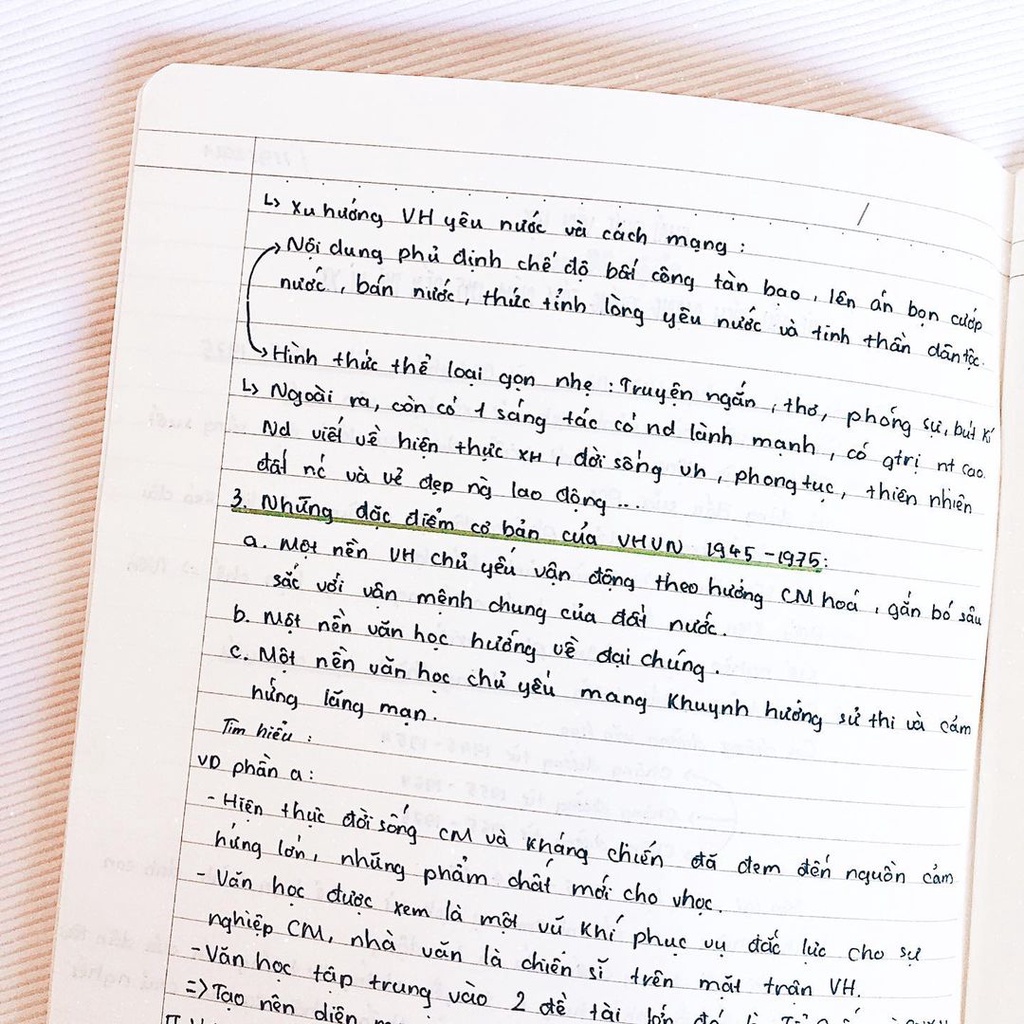 ↳ Xu hướng VH yêu nước và cách mạng :
→ Nội dung phủ định chế độ bất công tàn bạo, lên án bọn cướp
nước, bán nước, thức tỉnh lòng yêu nước và tinh thần dân tộc.
→ Hình thức thể loại gọn nhẹ : Truyện ngắn, thơ, phóng sự, bút kí
↳ Ngoài ra, còn có 1 sáng tác có nd lành mạnh, có gtrị nt cao.
Nd viết về hiện thực XH, đời sống vh, phong tục, thiên nhiên
đất nc và vẻ đẹp ng lao động...
3. Những đặc điểm cơ bản của VHVN 1945 - 1975:
a. Một nền VH chủ yếu vận động theo hướng CM hoá, gắn bó sâu
sắc với vận mệnh chung của đất nước.
b. Một nền văn học hướng về đại chúng.
c. Một nền văn học chủ yếu mang khuynh hướng sử thi và cảm
hứng lãng mạn.
Tìm hiểu :
VD phần a :
- Hiện thực đời sống CM và kháng chiến đã đem đến nguồn cảm
hứng lớn, những phẩm chất mới cho vhọc.
- Văn học được xem là một vũ khí phục vụ đắc lực cho sự
nghiệp CM, nhà văn là chiến sĩ trên mặt trận VH.
- Văn học tập trung vào 2 đề tài lớn đó là
=> Tạo nên diện